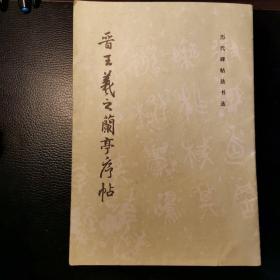 历代碑帖法书选
晋王羲之蘭亭序帖